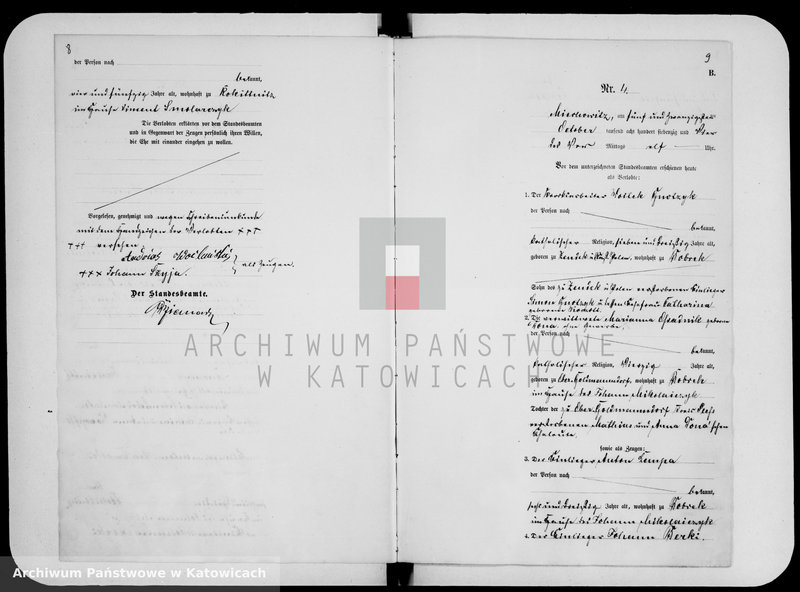 8
der Person nach
bekannt,
vier und fünfzig Jahre alt, wohnhaft zu Rokittnitz
im Hause Vincent Smolarczyk
Die Verlobten erklärten vor dem Standesbeamten
und in Gegenwart der Zeugen persönlich ihren Willen,
die Ehe mit einander eingehen zu wollen.
Vorgelesen, genehmigt und wegen Schreibensunkunde
mit dem Handzeichen der Verlobten +++
+++ versehen.
als Zeugen.
+++ Johann
Der Standesbeamte.
9
B.
Nr. 4
Miechowitz, am fünf und zwanzigsten
October tausend acht hundert siebenzig und Vier
des Vor Mittags elf Uhr.
Vor dem unterzeichneten Standesbeamten erschienen heute
als Verlobte:
1. Der
der Person nach
bekannt,
katholischer Religion, sieben und dreißig Jahre alt,
geboren zu wohnhaft zu Bobrek
Sohn des zu verstorbenen Einlieger
Simon Catharina
geborene
2. Die verwittwete Marianna geborene
ohne Gewerbe.
der Person nach
bekannt,
katholischer Religion, Vierzig Jahre alt,
geboren zu Ober Goldmannsdorf, wohnhaft zu Bobrek
im Hause des Johann Mikolaiczyk
Tochter der zu Ober Goldmannsdorf Kreis Pless
verstorbenen Mathias und Anna schen
Eheleute.
sowie als Zeugen:
3. Der Einlieger Anton Kempa
der Person nach
bekannt,
sechs und dreißig Jahre alt, wohnhaft zu Bobrek
im Hause des Johann Mikolaiczyk
4. Der Einlieger Johann
ARCHIWUM PAŃSTWOWE
W KATOWICACH
Archiwum Państwowe w Katowicach